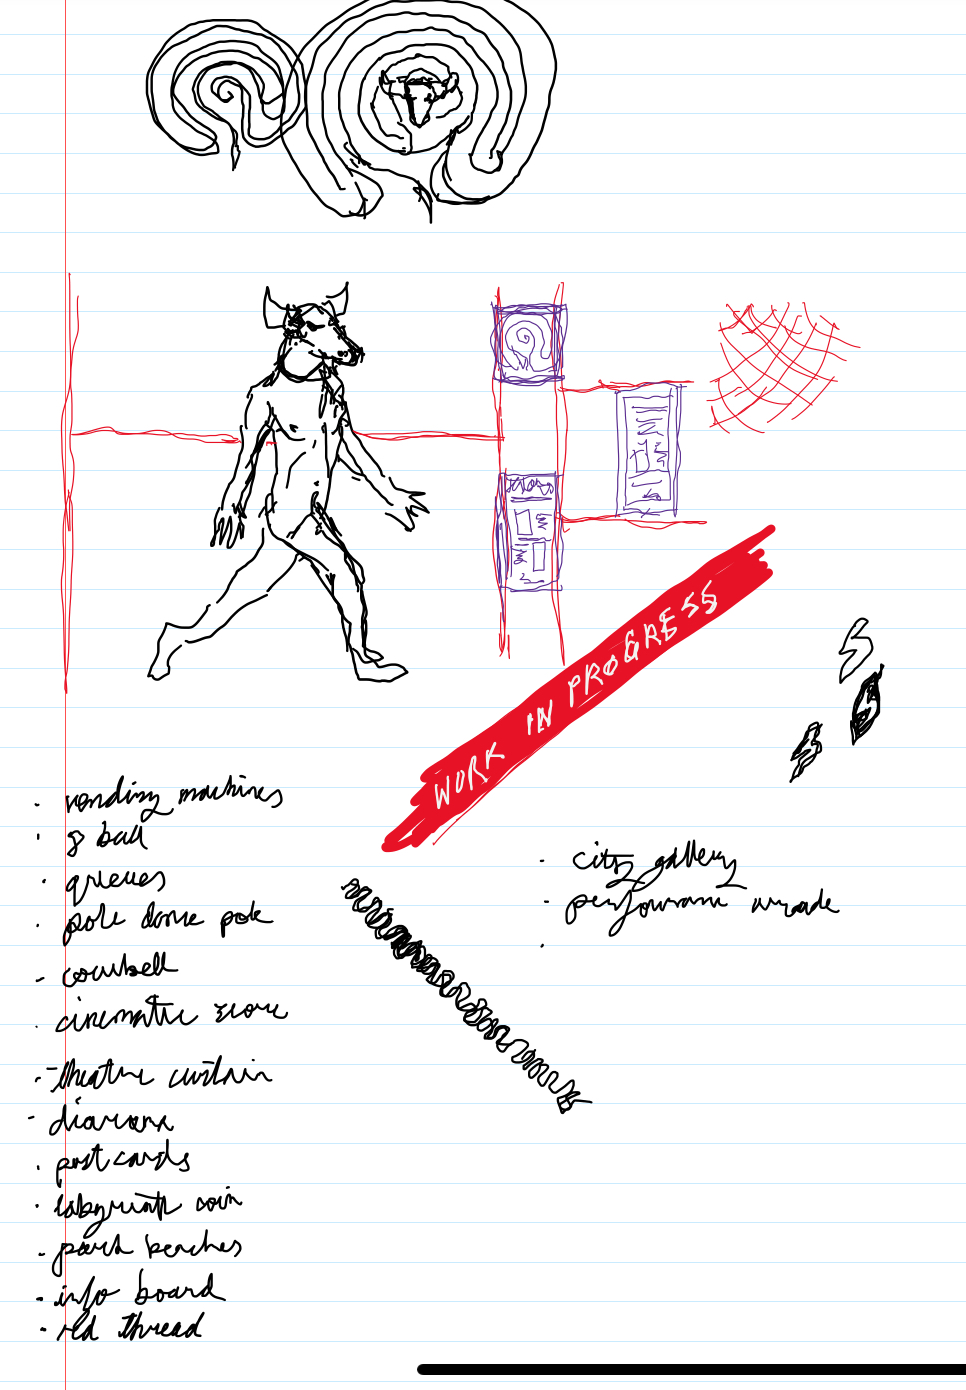 WORK IN PROGRESS
· vending machines
· 8 ball
· queues
· pole dance pole
- cowbell
· cinematic score
· theatre curtain
- diorama
· postcards
· labyrinth coin
· park benches
· info board
· red thread
- city gallery
- performance arcade